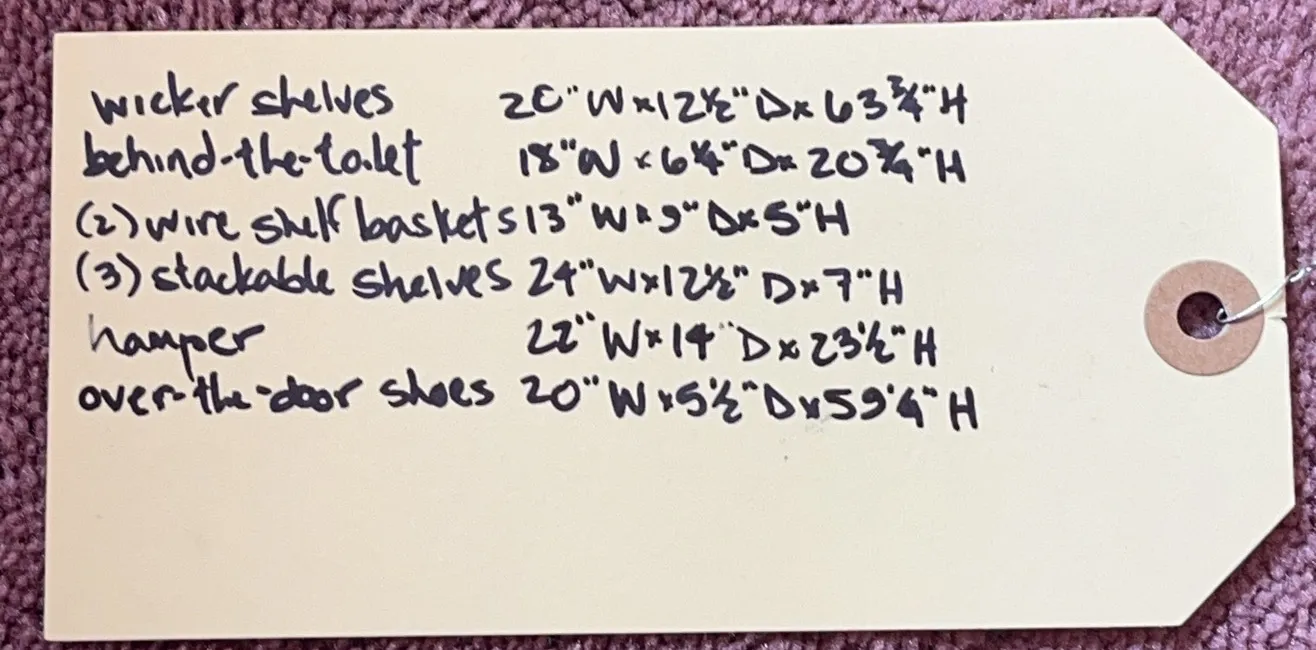 wicker shelves 20" W x 12 ½" D x 63 ¾" H
behind-the-toilet 18" W x 6 ¼" D x 20 ¾" H
(2) wire shelf baskets 13" W x 9" D x 5" H
(3) stackable shelves 24" W x 12 ½" D x 7" H
hamper 22" W x 14" D x 23 ½" H
over-the-door shoes 20" W x 5 ½" D x 59 ¼" H